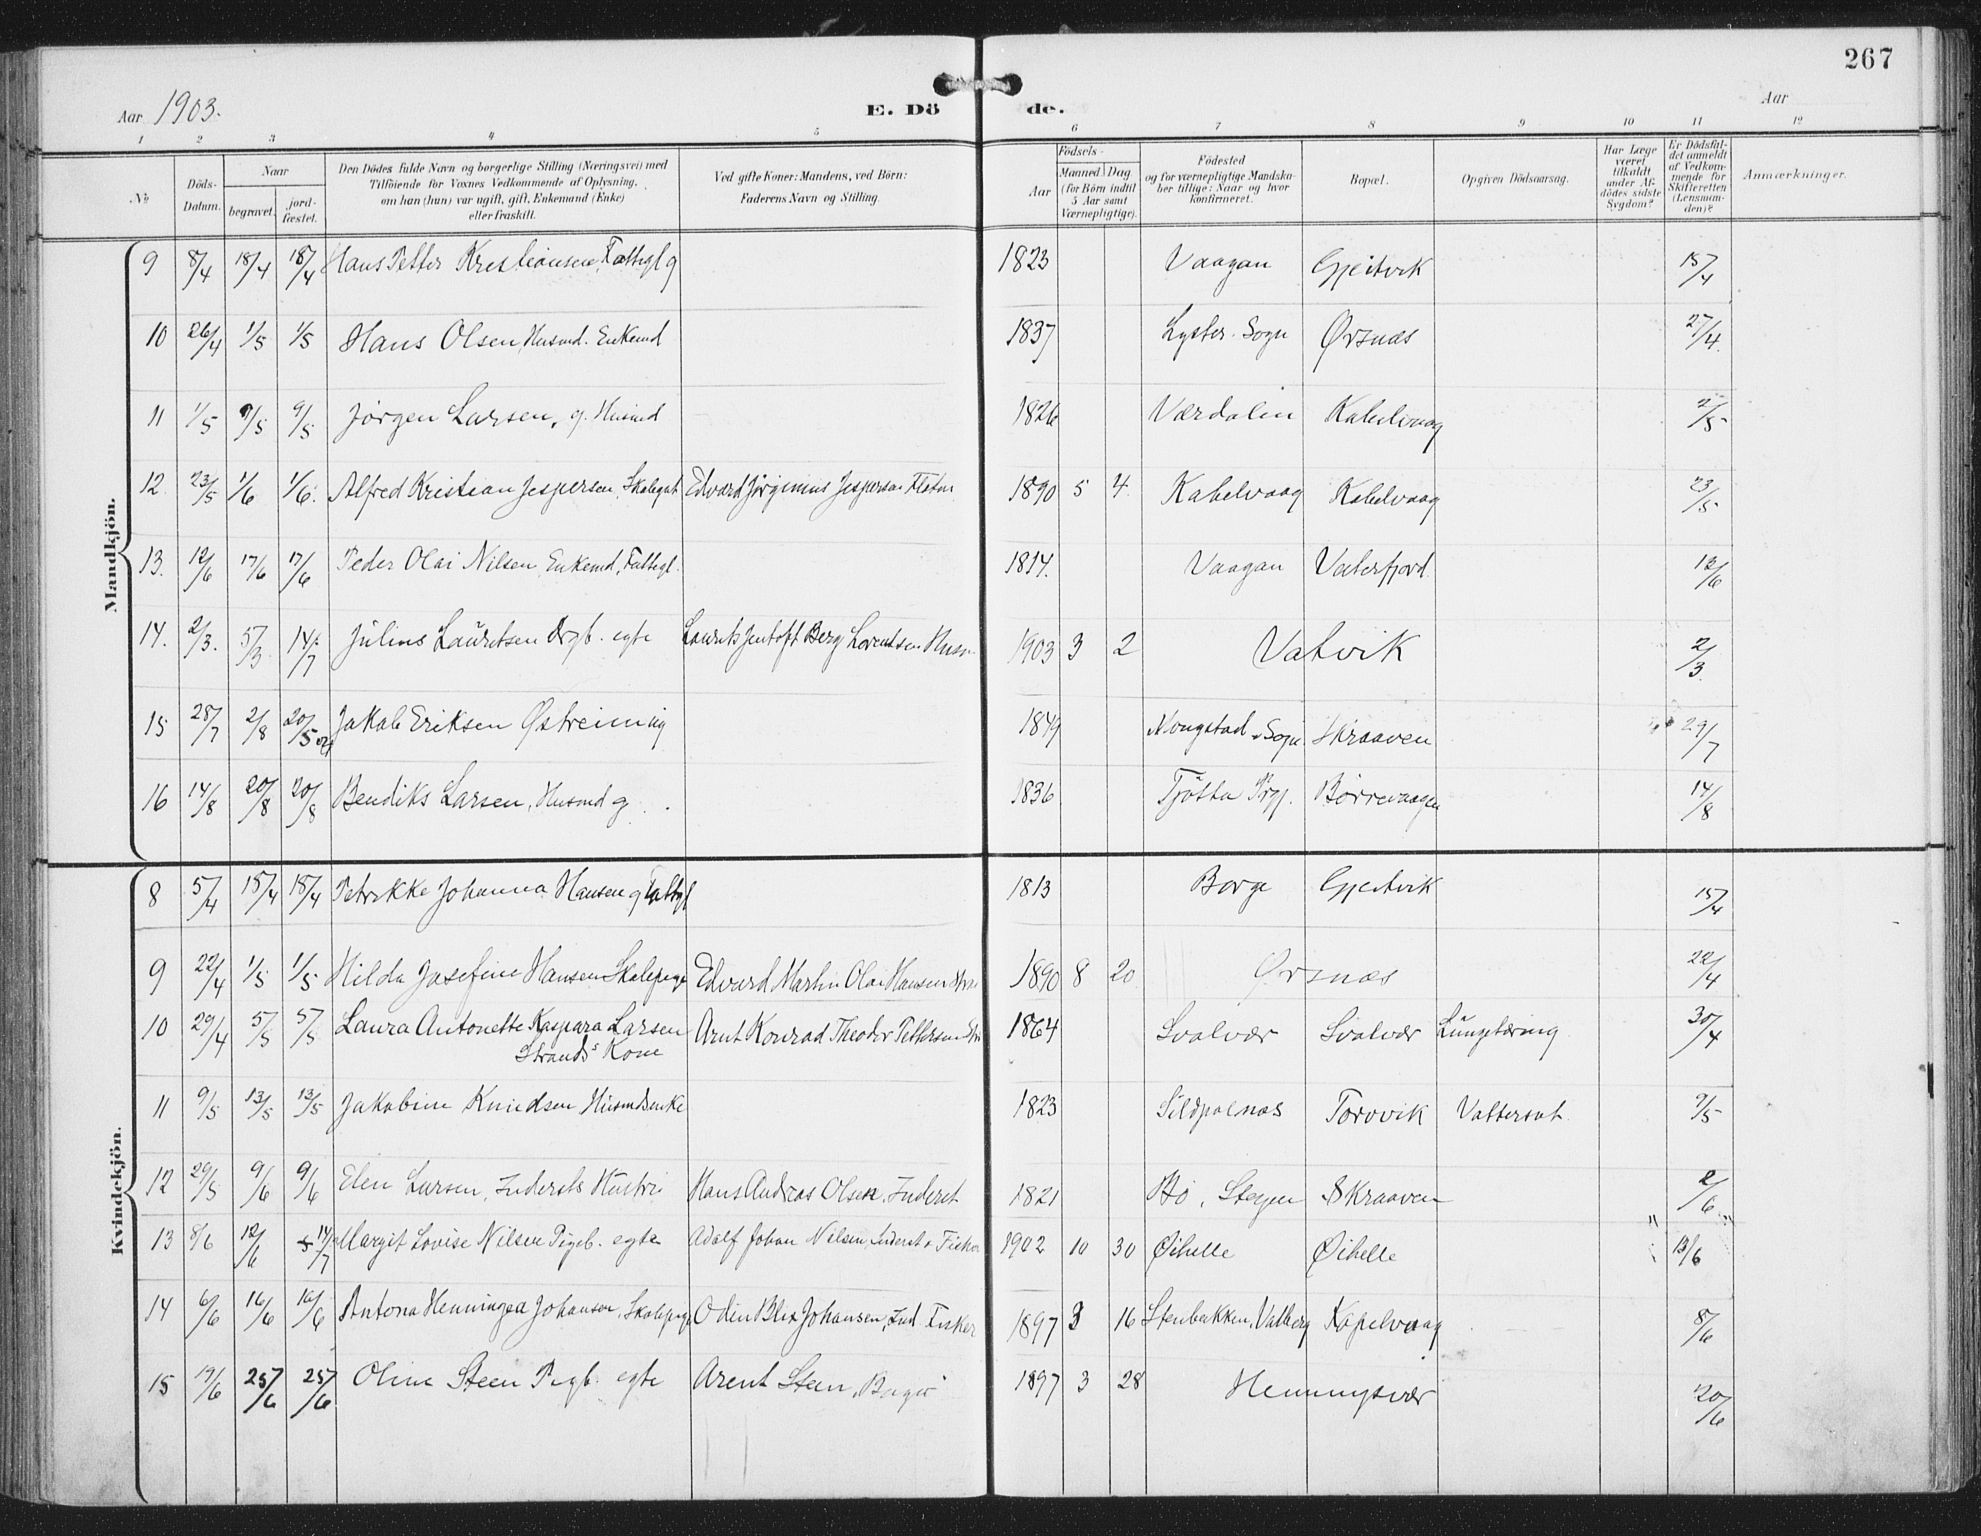 267
Aar 1903.
E. Dö de.
Aar
1 2 3 4 5 6 7 8 9 10 11 12
No
Döds-Datum.
Naar
begravet.
jord-fæstet.
Den Dödes fulde Navn og borgerlige Stilling (Næringsvei) med
Tilföiende for Voxnes Vedkommende af Oplysning,
om han (hun) var ugift, gift, Enkemand (Enke)
eller fraskilt.
Ved gifte Koner: Mandens, ved Börn:
Faderens Navn og Stilling.
Födsels-
Aar
Maaned Dag
(for Börn indtil
5 Aar samt
Værnepligtige).
Födested
og for værnepligtige Mandska-
ber tillige: Naar og hvor
konfirmeret.
Bopæl.
Opgiven Dödsaarsag.
Har Læge
været
tilkaldt
under Af-
dödes sidste
Sygdom?
Er Dödsfal-
det anmeldt
af Vedkom-
mende for
Skifteretten
(Lensman-
den)?
Anmærkninger.
Mandkjön.
9 8/4 18/4 18/4 Hans Petter Kristiansen, Fattigl g 1823 Vaagan Gjeitvik 15/4
10 26/4 1/5 1/5 Hans Olsen, Husmd. Enkemd 1837 Lyster Sogn Ørsnæs 27/4.
11 1/5 9/5 9/5 Jørgen Larsen, g. Husmd 1826 Værdalen Kabelvaag 2/5
12. 23/5 1/6 1/6. Alfred Kristian Jespersen, Skolegut Edvard Jørginius Jespersen 1890 5 4. Kabelvaag Kabelvaag 23/5
13. 12/6 17/6 17/6 Peder Olai Nilsen Enkemd, Fattigl. 1814. Vaagan Vaterfjord. 13/6
14. 2/3. 5/3 14/7 Julius Lauritsen Drgb. egte Laurits Jentoft Berg Lorentsen 1903 3 2 Vatvik 2/3
15 28/7 2/8 20/5 04 Jakob Eriksen Østrein ug 1849 Sogn Skraaven 29/7
16 14/8 20/8 20/8 Bendiks Larsen, Husmd g. 1836 Tjøtta Prgj. Børrevaagen 14/8
Kvindekjön.
8 5/4 18/4 18/4 Petrikke Johanna Hansen g Fattigl 1813 Borge Gjeitvik 15/4
9 22/4 1/5 1/5 Hilda Josefine Hansen Skolepige Edvard Martin Olai Hansen 1890 8 20 Ørsnæs 22/4
10 29/4 5/5 5/5 Laura Antonette Kaspara Larsen Arnt Konrad Theodor Pettersen 1864 Svolvær Svolvær Lungetæring 30/4
Strands Kone
11 9/5 13/5 13/5 Jakobine Knudsen Husmdsenke 1823 Sildpolnæs Torvvik Vattersot. 9/5
12 29/5 9/6 9/6 Elen Larsen, Indersts Hustru Hans Andreas Olsen, Inderst 1821 Bø, Steigen Skraaven 2/6
13 8/6 12/6 14/7 Margit Lovise Nilsen Pigeb. egte Adolf Johan Nilsen, Inderst & Fisker 1902 10 30 Øihelle Øihelle 13/6
14 6/6 16/6 16/6 Antona Henningea Johansen, Skolepige Odin Blix Johansen, Ind. Fisker 1897 3 16 Stenbakken, Valberg Kapelvaag 8/6
15 19/6 25/6 25/6 Oline Steen Pigb. egte Arent Steen, 1897 3 28 Henningsvær 20/6